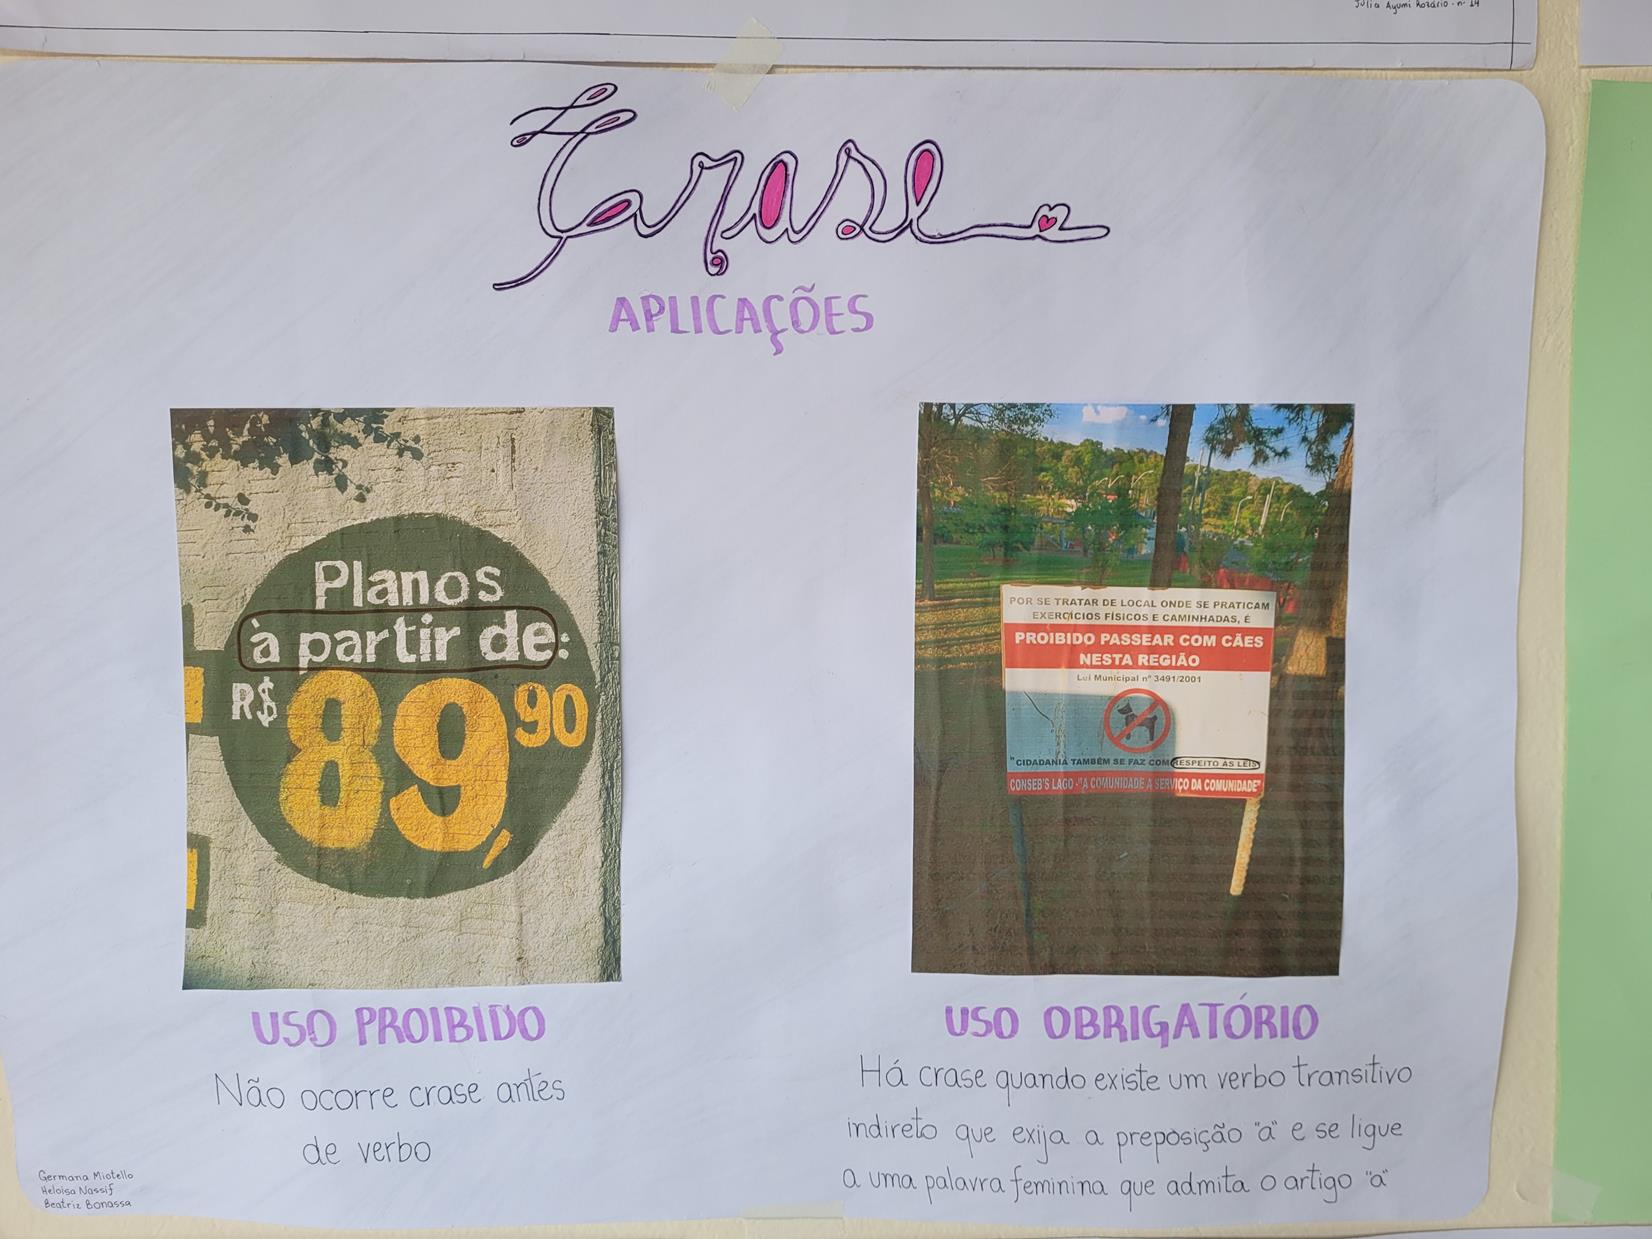 Júlia Ayumi Rozário - nº 14
Crase
APLICAÇÕES
Planos
à partir de:
R$ 89,90
POR SE TRATAR DE LOCAL ONDE SE PRATICAM
EXERCÍCIOS FÍSICOS E CAMINHADAS, É
PROIBIDO PASSEAR COM CÃES
NESTA REGIÃO
Lei Municipal nº 3491/2001
"CIDADANIA TAMBÉM SE FAZ COM RESPEITO ÀS LEIS"
CONSEB'S LAGO - "A COMUNIDADE A SERVIÇO DA COMUNIDADE"
USO PROIBIDO
Não ocorre crase antes
de verbo
USO OBRIGATÓRIO
Há crase quando existe um verbo transitivo
indireto que exija a preposição "a" e se ligue
a uma palavra feminina que admita o artigo "a"
Germana Miotello
Heloisa Nassif
Beatriz Bonassa